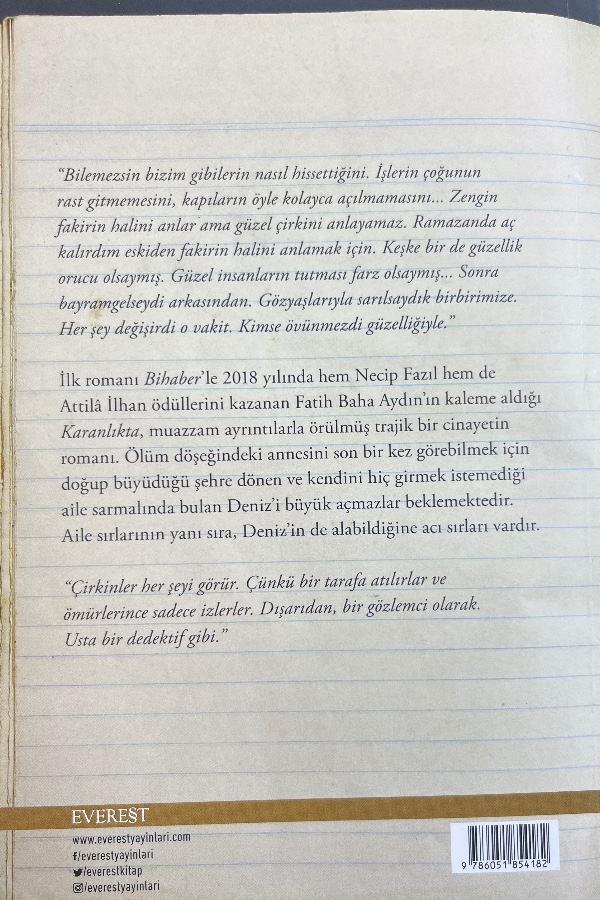 “Bilemezsin bizim gibilerin nasıl hissettiğini. İşlerin çoğunun
rast gitmemesini, kapıların öyle kolayca açılmamasını... Zengin
fakirin halini anlar ama güzel çirkini anlayamaz. Ramazanda aç
kalırdım eskiden fakirin halini anlamak için. Keşke bir de güzellik
orucu olsaymış. Güzel insanların tutması farz olsaymış... Sonra
bayramgelseydi arkasından. Gözyaşlarıyla sarılsaydık birbirimize.
Her şey değişirdi o vakit. Kimse övünmezdi güzelliğiyle.”
İlk romanı Bihaber’le 2018 yılında hem Necip Fazıl hem de
Attilâ İlhan ödüllerini kazanan Fatih Baha Aydın’ın kaleme aldığı
Karanlıkta, muazzam ayrıntılarla örülmüş trajik bir cinayetin
romanı. Ölüm döşeğindeki annesini son bir kez görebilmek için
doğup büyüdüğü şehre dönen ve kendini hiç girmek istemediği
aile sarmalında bulan Deniz’i büyük açmazlar beklemektedir.
Aile sırlarının yanı sıra, Deniz’in de alabildiğine acı sırları vardır.
“Çirkinler her şeyi görür. Çünkü bir tarafa atılırlar ve
ömürlerince sadece izlerler. Dışarıdan, bir gözlemci olarak.
Usta bir dedektif gibi.”
EVEREST
www.everestyayinlari.com
f/everestyayinlari
/everestkitap
/everestyayinlari
9 786051 854182